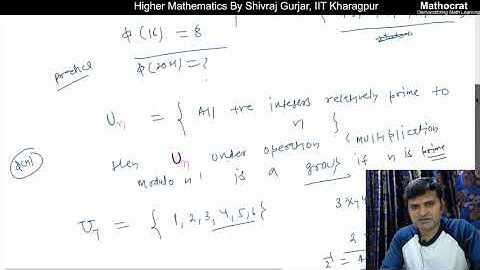 Higher Mathematics By Shivraj Gurjar, IIT Kharagpur
Mathocrat
Democratizing Math Learning
φ(16) = 8
practice
φ(2021) = ?
Un = { All +ve integers relatively prime to n }
then Un under operation (multiplication
modulo n) is a group if n is prime
U7 = { 1, 2, 3, 4, 5, 6 }
3 x7 4
2